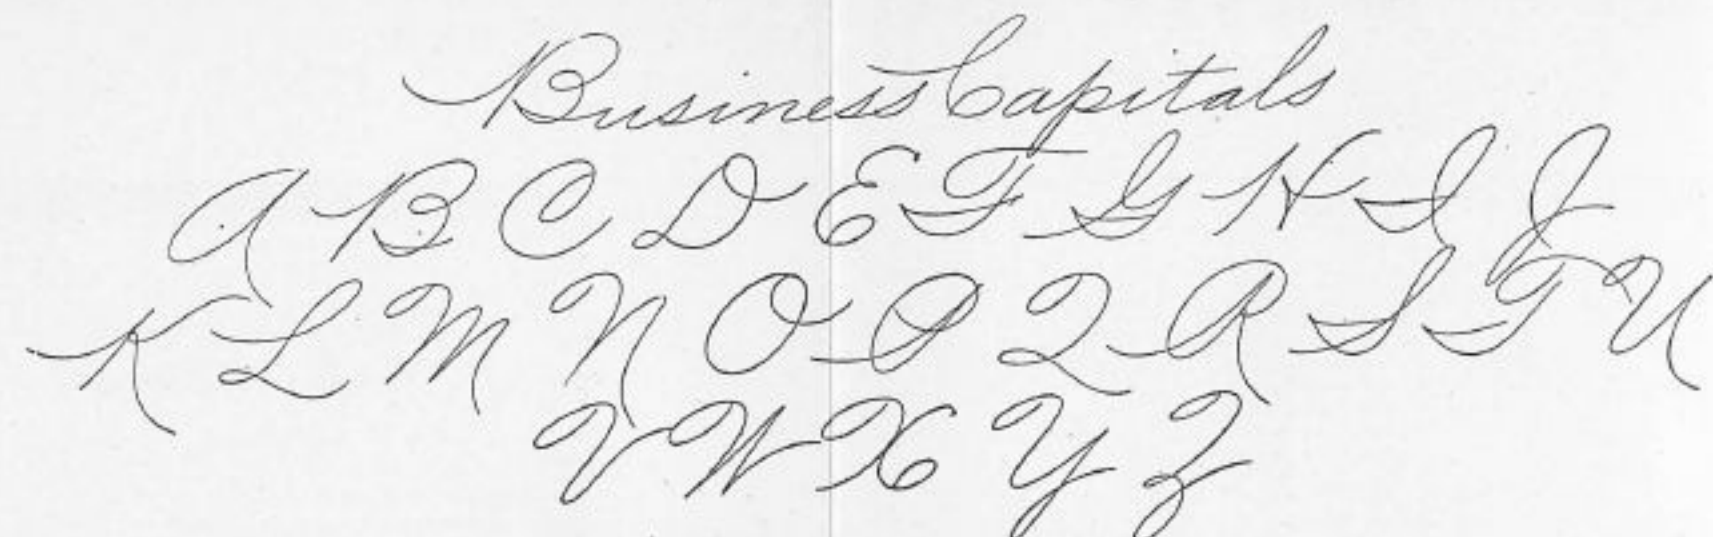 Business Capitals
A B C D E F G H I J
K L M N O P Q R S T U
V W X Y Z